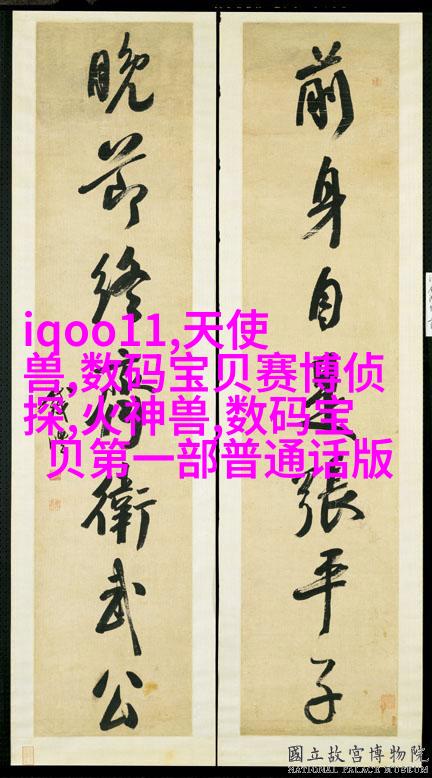 前身自是張平子
晚節終齊衛武公
錢灃
iqoo11,天使
兽,数码宝贝赛博侦
探,火神兽,数码宝
贝第一部普通话版
國立故宮博物院
NATIONAL PALACE MUSEUM